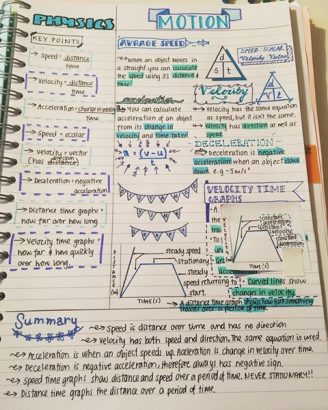 PHYSICS
MOTION
KEY POINTS
→ Speed = distance
time
→ Velocity = distance
time
→ Acceleration = change in velocity
time
→ Speed = scalar
→ Velocity = vector
(has direction)
→ Deceleration = negative
acceleration
→ Distance time graphs =
how far over how long
→ Velocity time graphs =
how far & how quickly
over how long.
AVRAGE SPEED
→ when an object moves in
a straight you can calculate
the speed using its distance &
time
d
s t
SPEED: SCALAR
Velocity: Vector
acceleration
→ You can calculate
acceleration of an object
from its change in
velocity and time taken
a = (v-u)
t
Velocity
d
v t
→ Velocity has the same equation
as speed, but it isn't the same.
→ Velocity has direction as well as
speed
DECELERATION
→ Deceleration is negative
acceleration when an object slows
down. e.g -5m/s²
VELOCITY TIME
GRAPHS
DISTANCE (m)
steady speed
stationary
steady
speed returning to
start.
TIME (s)
TIME (s)
→ Curved lines show
changes in velocity
→ A distance time graph shows how far something
travels over a period of time.
Summary
→ Speed is distance over time and has no direction
→ Velocity has both speed and direction. The same equation is used.
→ Acceleration is when an object speeds up. Acceleration is change in velocity over time.
→ Deceleration is negative acceleration, therefore always has negative sign.
→ Speed time graphs show distance and speed over a period of time. NEVER STATIONARY!!
→ Distance time graphs the distance over a period of time.